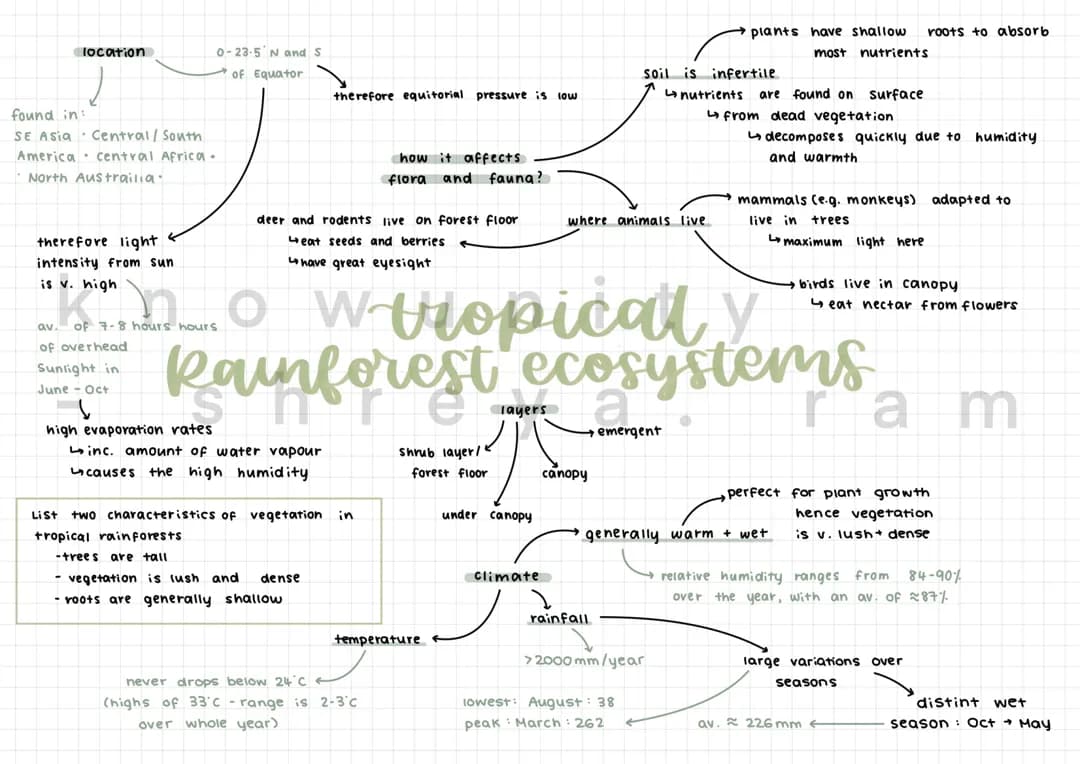 location
0-23.5°N and S
of Equator
found in:
SE Asia · Central/South
America · Central Africa ·
· North Austrailia ·
therefore equitorial pressure is low
therefore light
intensity from sun
is v. high
av. of 7-8 hours hours
of overhead
Sunlight in
June - Oct
high evaporation rates
↳ inc. amount of water vapour
↳ causes the high humidity
how it affects
flora and fauna?
soil is infertile
plants have shallow roots to absorb
most nutrients
↳ nutrients are found on surface
↳ from dead vegetation
↳ decomposes quickly due to humidity
and warmth
where animals live
mammals (e.g. monkeys) adapted to
live in trees
↳ maximum light here
birds live in canopy
↳ eat nectar from flowers
deer and rodents live on forest floor
↳ eat seeds and berries
↳ have great eyesight
knowunity
tropical
Rainforest ecosystems
- shreya.ram
layers
emergent
canopy
under canopy
shrub layer/
forest floor
List two characteristics of vegetation in
tropical rainforests
- trees are tall
- vegetation is lush and dense
- roots are generally shallow
climate
generally warm + wet
perfect for plant growth
hence vegetation
is v. lush + dense
relative humidity ranges from 84-90%
over the year, with an av. of ≈87%
rainfall
>2000mm/year
large variations over
seasons
distint wet
season: Oct → May
av. ≈ 226mm
lowest: August: 38
peak: March: 262
temperature
never drops below 24°C
(highs of 33°C - range is 2-3°C
over whole year)